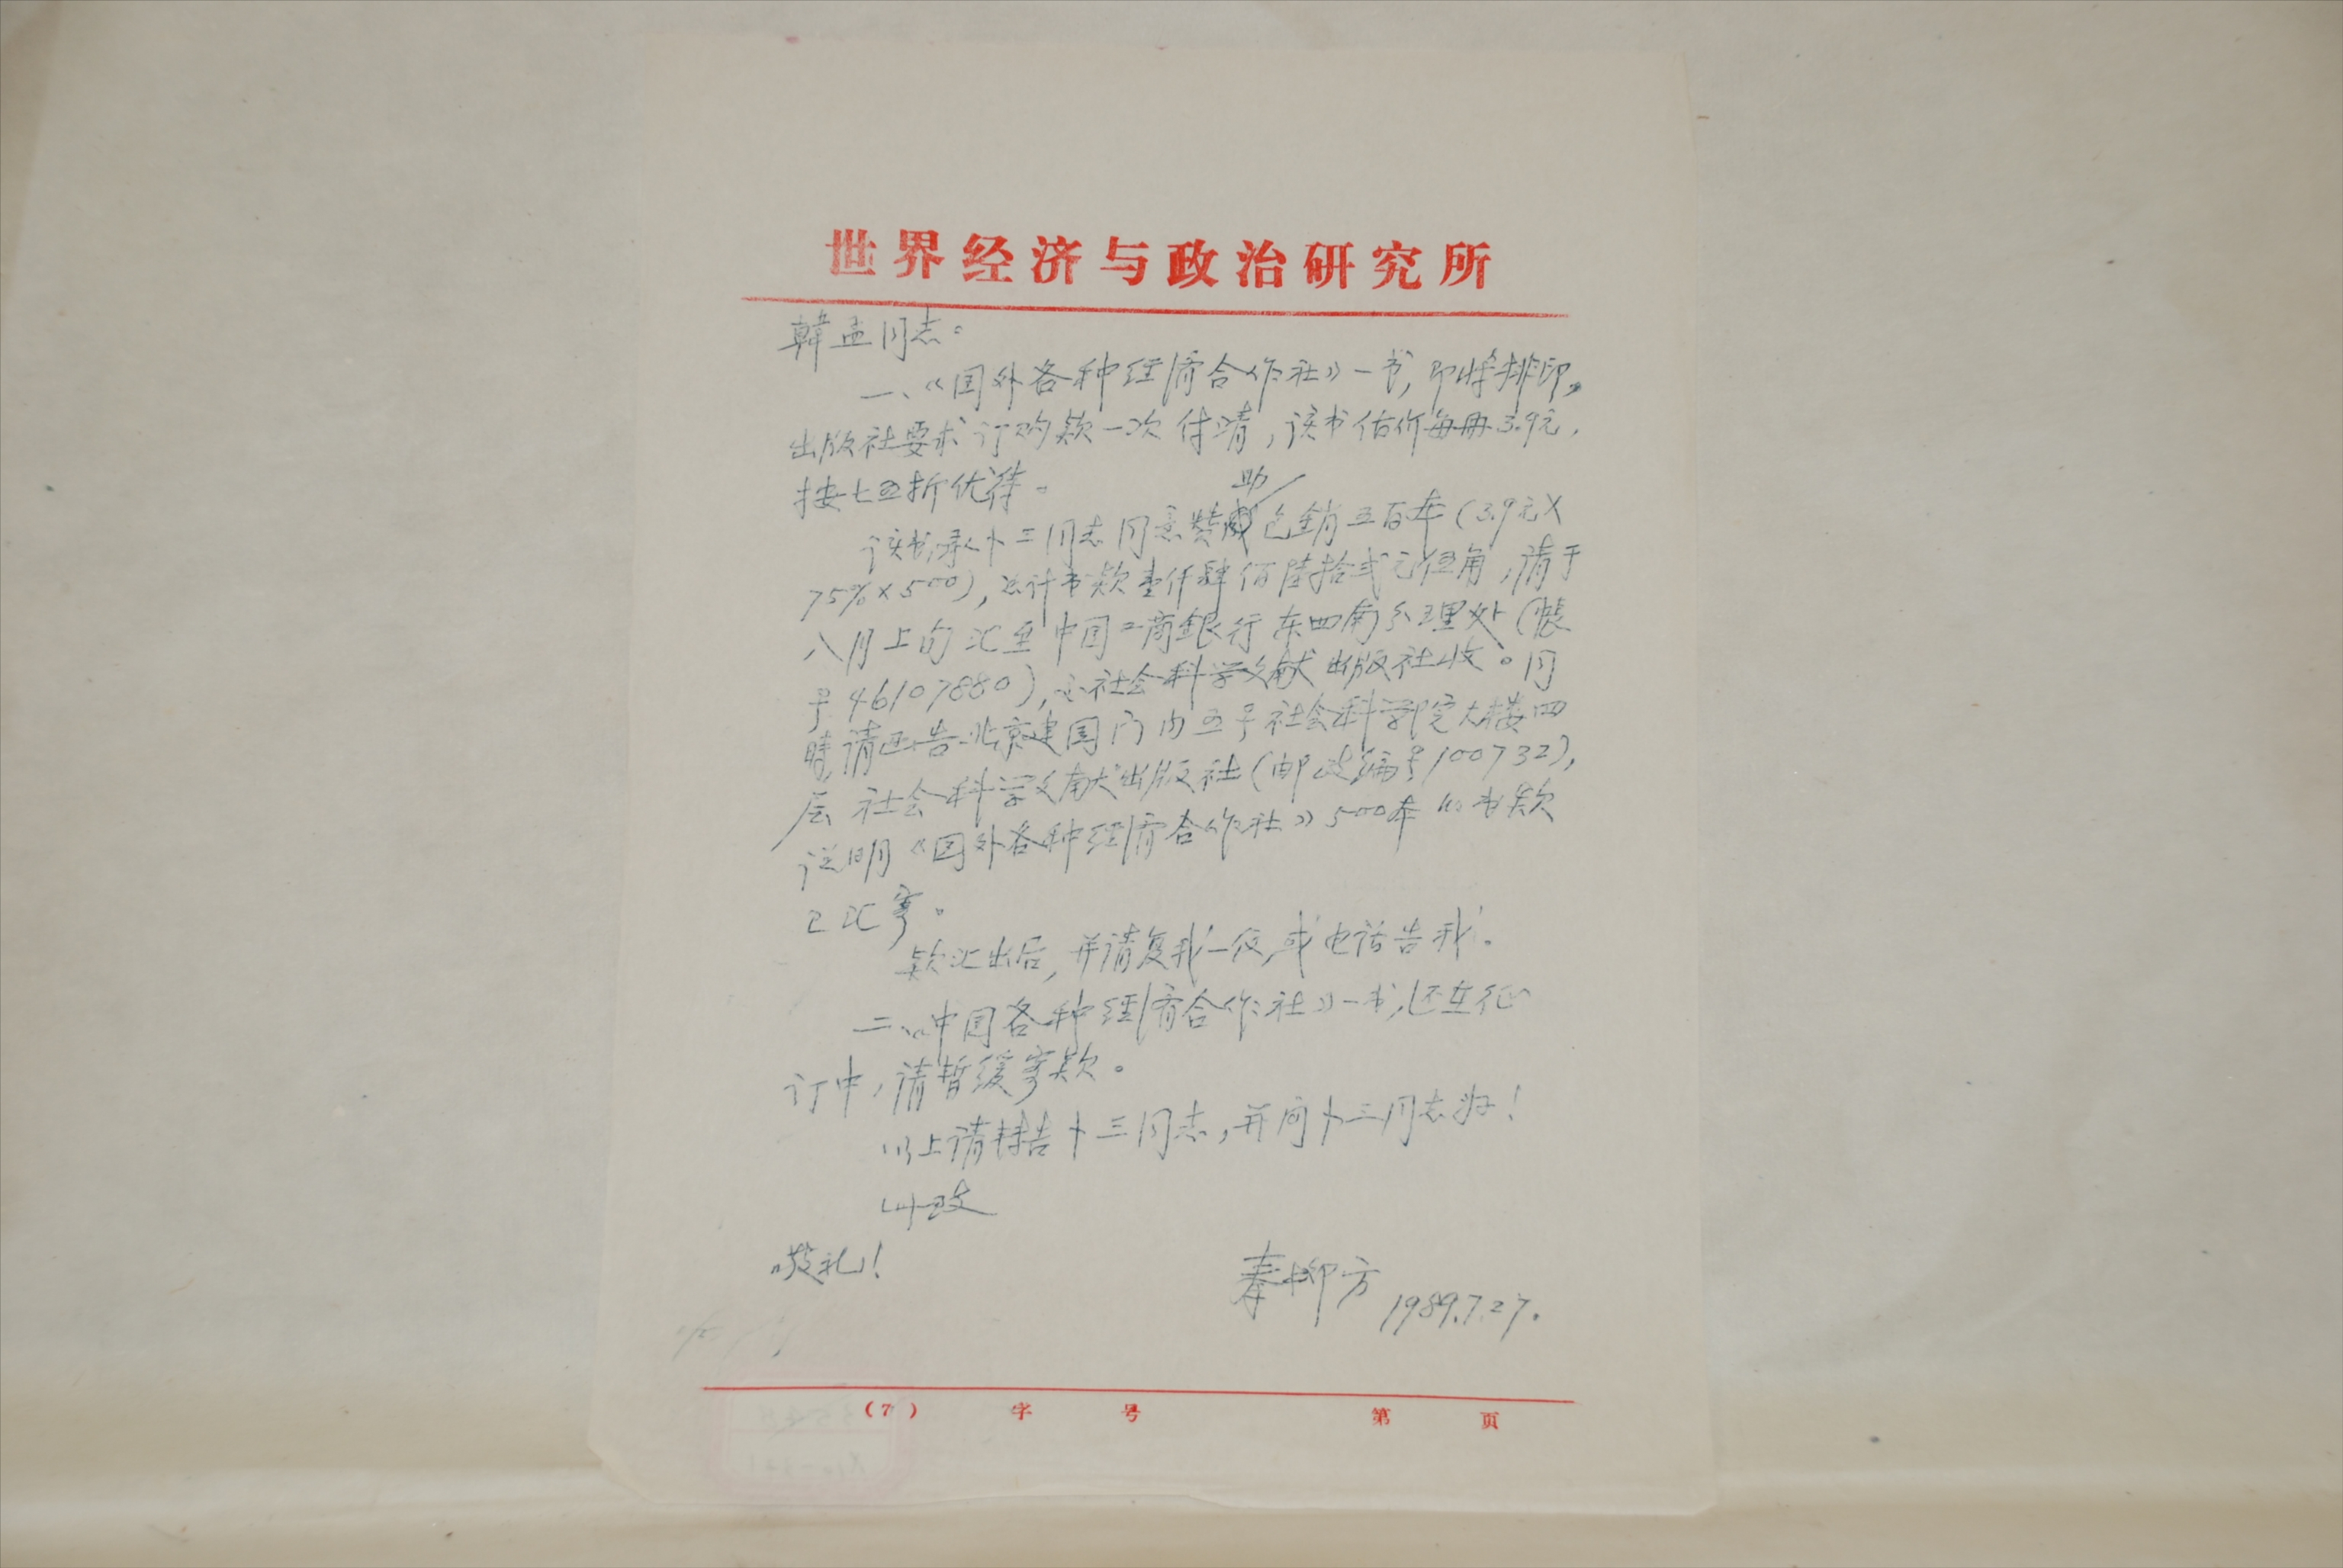 世界经济与政治研究所
韓孟同志。
一、《国外各种经济合作社》一书，即将排印。
出版社要求订购款一次付清，该书估价每册3.9元，
按七五折优待。
助
该书承卜三同志同意赞 包销五百本（3.9元X
75%×500），总计书款壹仟肆佰陆拾弍元伍角，请于
八月上旬汇至中国工商銀行东四南分理处（帳
号46107880），交社会科学文献出版社收。同
時，请函告北京建国门内五号社会科学院大楼四
层社会科学文献出版社（邮政编号100732），
说明《国外各种经济合作社》500本的书款
已汇寄。
款汇出后，并请复我一信，或电话告我。
二、《中国各种经济合作社》一书，还在征
订中，请暂缓寄款。
以上请转告卜三同志，并问卜三同志好！
此致
敬礼！
秦柳方
1989.7.27.
（7） 字 号 第 页